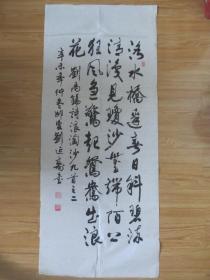 洛水橋邊春日斜碧流
清淺見瓊沙無端陌上
狂風急驚起鴛鴦出浪
花
劉禹錫詩浪淘沙九首之二
辛未年仲冬劉書